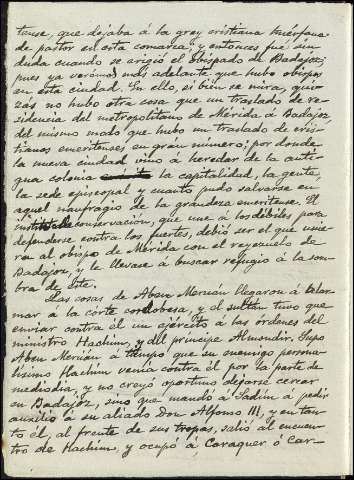 tense, que dejaba á la grey cristiana huérfana
de pastor en esta comarca; y entonces fué sin
duda cuando se erigió el obispado de Badajoz;
pues ya verémos más adelante que hubo obispos
en esta ciudad. En ello, si bien se mira, qui-
zás no hubo otra cosa que un traslado de re-
sidencia del metropolitano de Mérida á Badajoz
del mismo modo que hubo un traslado de cris-
tianos emeritenses en gran número; por donde
la nueva ciudad vino á heredar de la anti-
gua colonia la capitalidad, la gente,
la sede episcopal y cuanto pudo salvarse en
aquel naufragio de la grandeza emeritense. El
instinto de conservación, que une á los débiles para
defenderse contra los fuertes, debió ser el que unie-
ra al obispo de Mérida con el reyezuelo de
Badajoz, y le llevase á buscar refugio á la som-
bra de éste.
Las cosas de Aben Meruán llegaron á alar-
mar á la corte cordobesa, y el sultán tuvo que
enviar contra él un ejército á las órdenes del
ministro Hachim, y del príncipe Almondir. Supo
Aben Meruán á tiempo que su enemigo perso-
nalísimo Hachim venía contra él por la parte de
mediodía, y no creyó oportuno dejarse cercar
en Badajoz, sino que mandó á Sadún á pedir
auxilio á su aliado Don Alfonso III, y en tan-
to él, al frente de sus tropas, salió al encuen-
tro de Hachim, y ocupó á Caraquer ó Car-